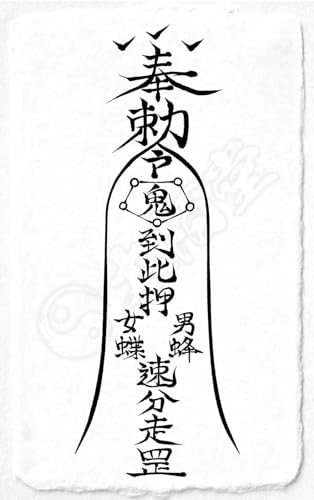 奉
勅
令
鬼
到
此
押
女蝶
男蜂
速
分
走
罡